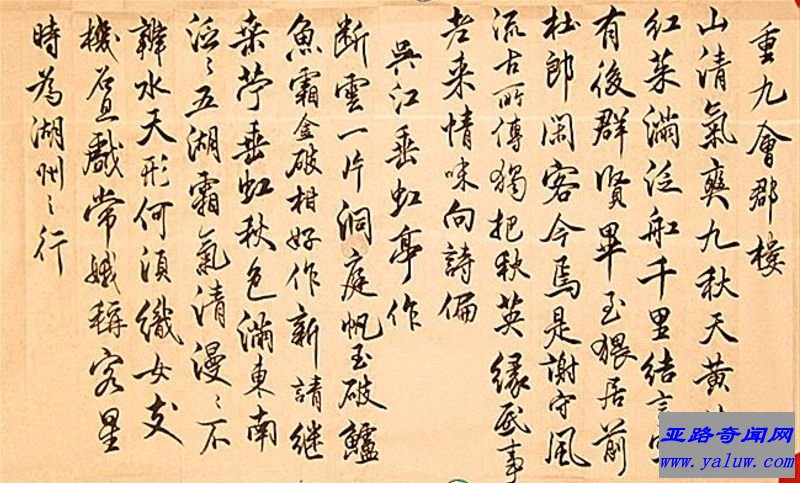 重九會郡樓
山清氣爽九秋天黃
紅茱滿泛船千里結言
有後群賢畢至猥居前
杜郎閑客今焉是謝守風
流古所傳獨把秋英緣底事
老来情味向詩偏
吳江垂虹亭作
断雲一片洞庭帆玉破鱸
魚霜金破柑好作新詩继
桑苧垂虹秋色滿東南
泛〻五湖霜氣清漫〻不
辨水天形何須織女支
機石且戲常娥稱客星
時為湖州之行
亚路奇闻网
www.yaluw.com